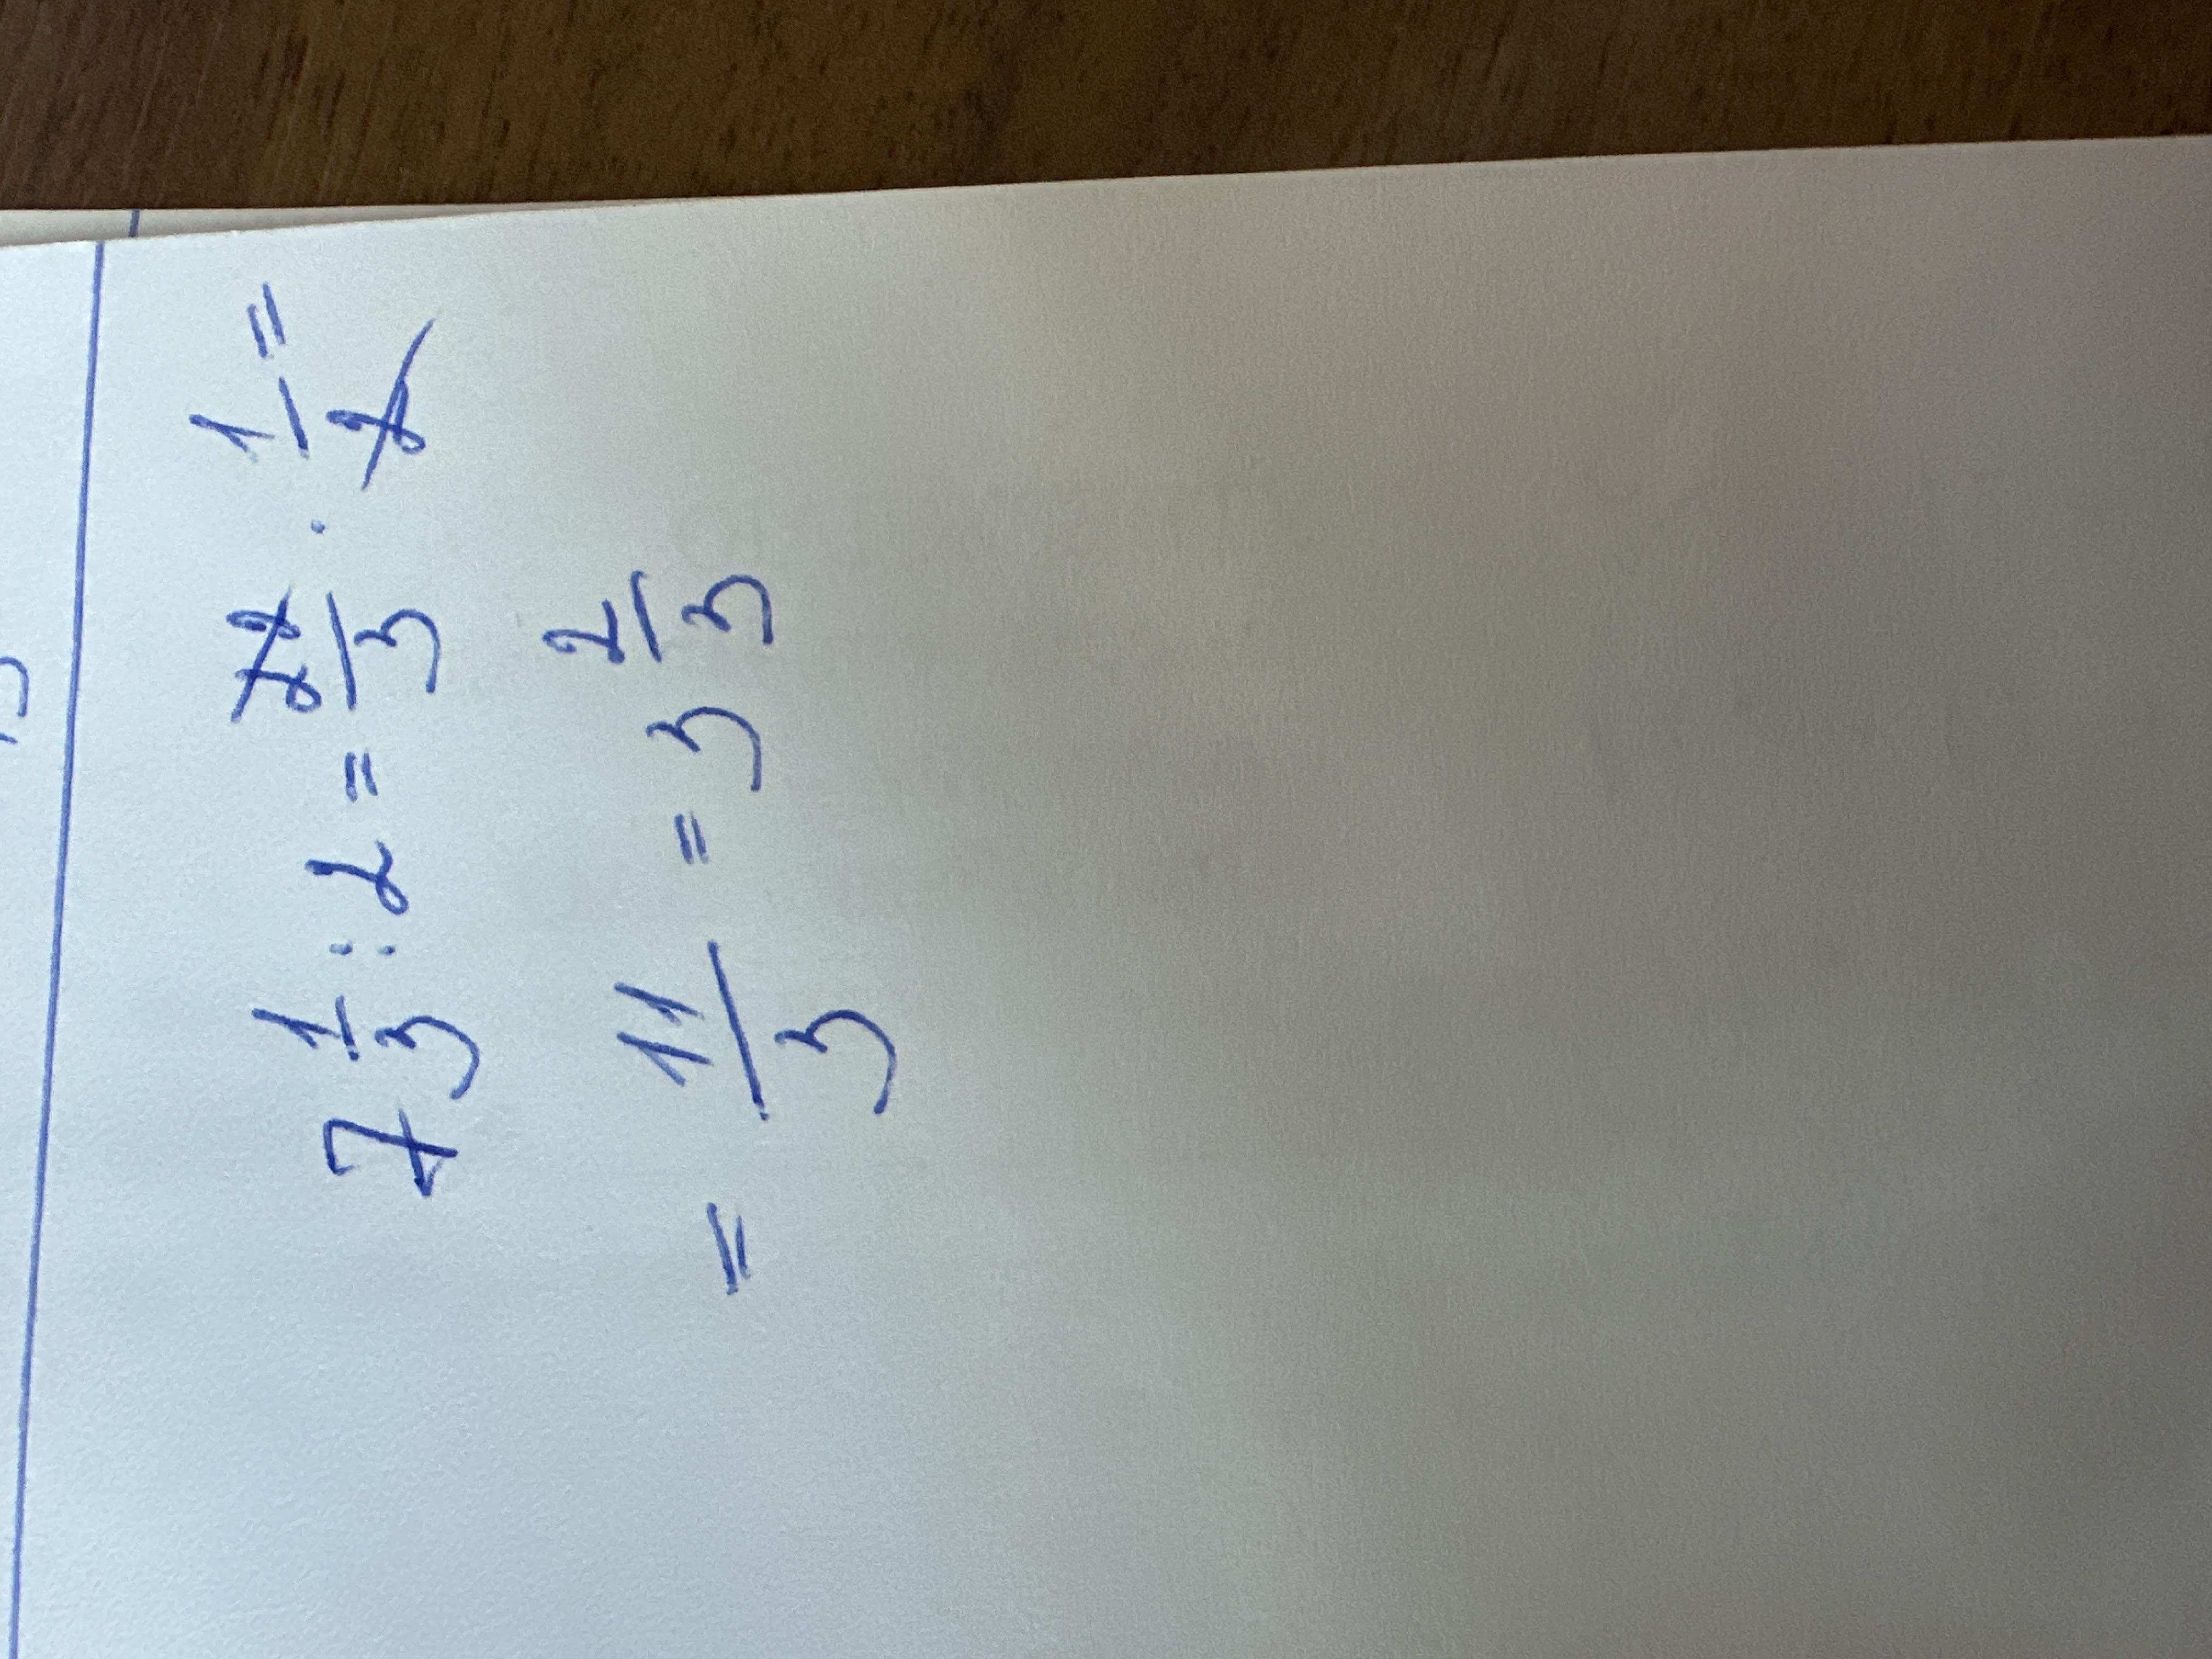 7 1/3 : 2 = 22/3 · 1/2 =
= 11/3 = 3 2/3